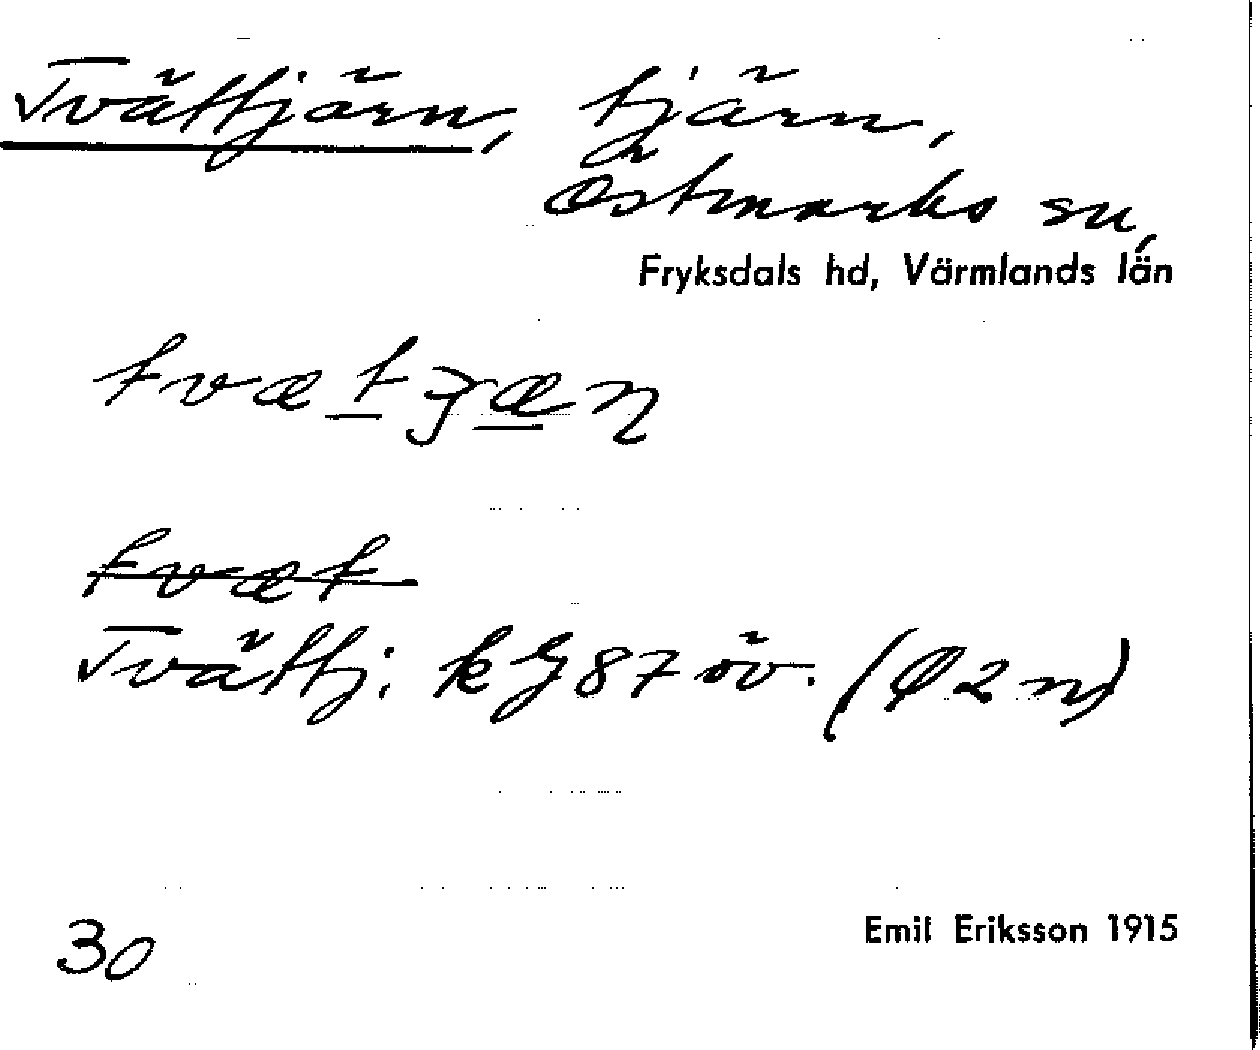 Tvättjärn, tjärn,
Östmarks sn,
Fryksdals hd, Värmlands län
tvætjæɳ
tvæt
Tvättj. kG87 öv. (Ø2n)
30
Emil Eriksson 1915